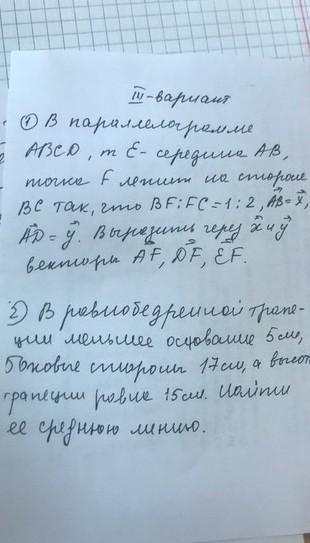 III-вариант
① В параллелограмме
ABCD, т E- середина AB,
точка F лежит на стороне
BC так, что BF:FC=1:2, AB=x,
AD=y. Выразить через x и y
векторы AF, DF, EF.
2) В равнобедренной трапе-
ции меньшее основание 5см,
боковые стороны 17см, а высот
трапеции равна 15см. Найти
ее среднюю линию.